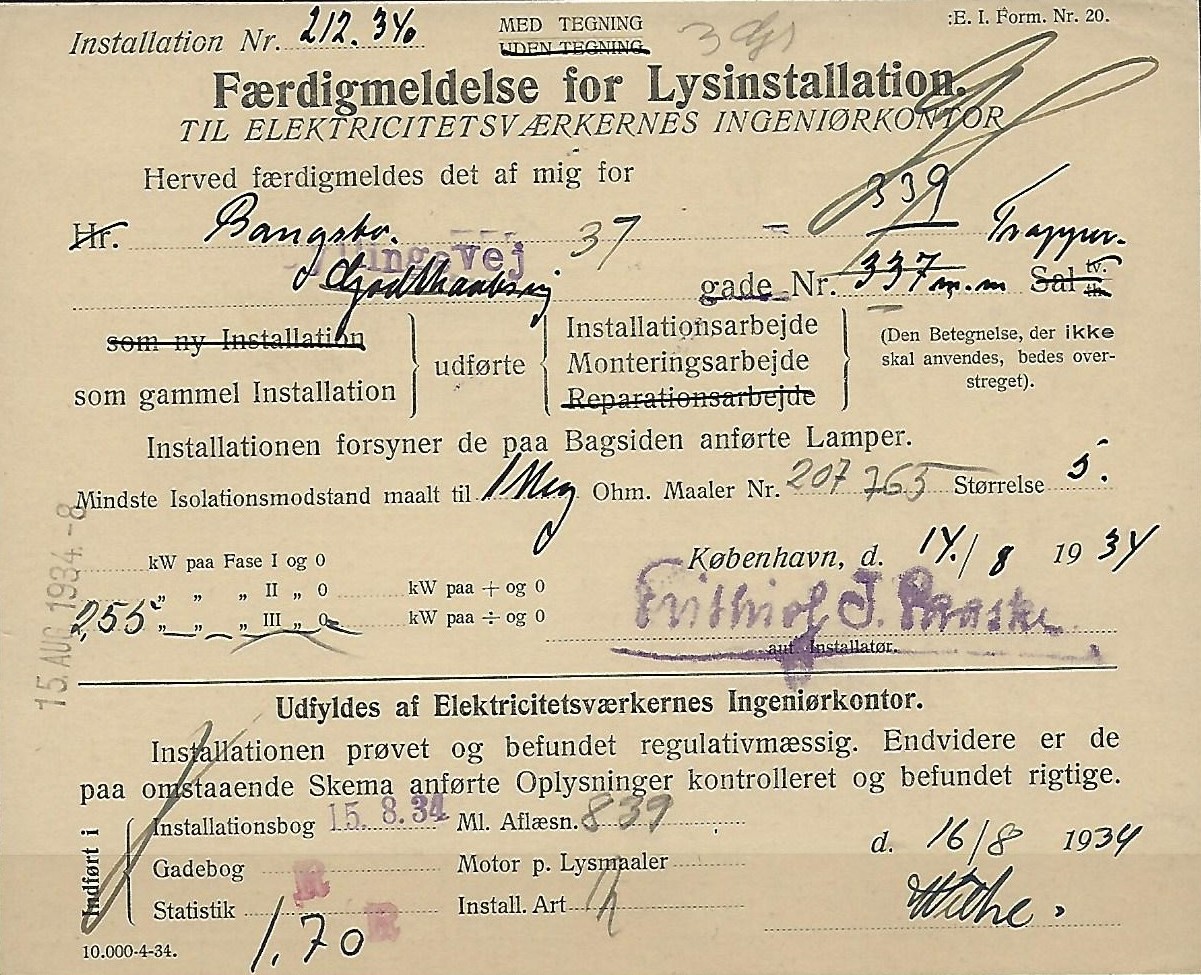 :E. I. Form. Nr. 20.
Installation Nr. 212.34
MED TEGNING
UDEN TEGNING
Færdigmeldelse for Lysinstallation.
TIL ELEKTRICITETSVÆRKERNES INGENIØRKONTOR
Herved færdigmeldes det af mig for
339
Hr. Bangsbo. 37 = Trapper.
vej
gade Nr. 337 m.m Sal tv. th.
som ny Installation
som gammel Installation
udførte
Installationsarbejde
Monteringsarbejde
Reparationsarbejde
(Den Betegnelse, der ikke
skal anvendes, bedes over-
streget).
Installationen forsyner de paa Bagsiden anførte Lamper.
Mindste Isolationsmodstand maalt til 1 Meg Ohm. Maaler Nr. 207 765 Størrelse 5.
15. AUG 1934.-8
kW paa Fase I og 0
„ „ „ II „ 0 kW paa + og 0
2,55 „ „ „ III „ 0 kW paa ÷ og 0
København, d. 14./8 1934
Frithiof J.
aut. Installatør.
Udfyldes af Elektricitetsværkernes Ingeniørkontor.
Installationen prøvet og befundet regulativmæssig. Endvidere er de
paa omstaaende Skema anførte Oplysninger kontrolleret og befundet rigtige.
Indført i
Installationsbog 15. 8. 34 Ml. Aflæsn. 839
Gadebog R Motor p. Lysmaaler
Statistik R Install. Art
d. 16/8 1934
1.70
10.000-4-34.